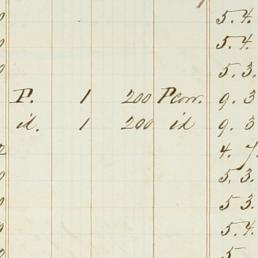 5.4.
5.4.
5.3.
P. 1 200 Pcorr. 9.3
id. 1 200 id 9.3
4.7.
5.3.
5 3.
5.4.
5